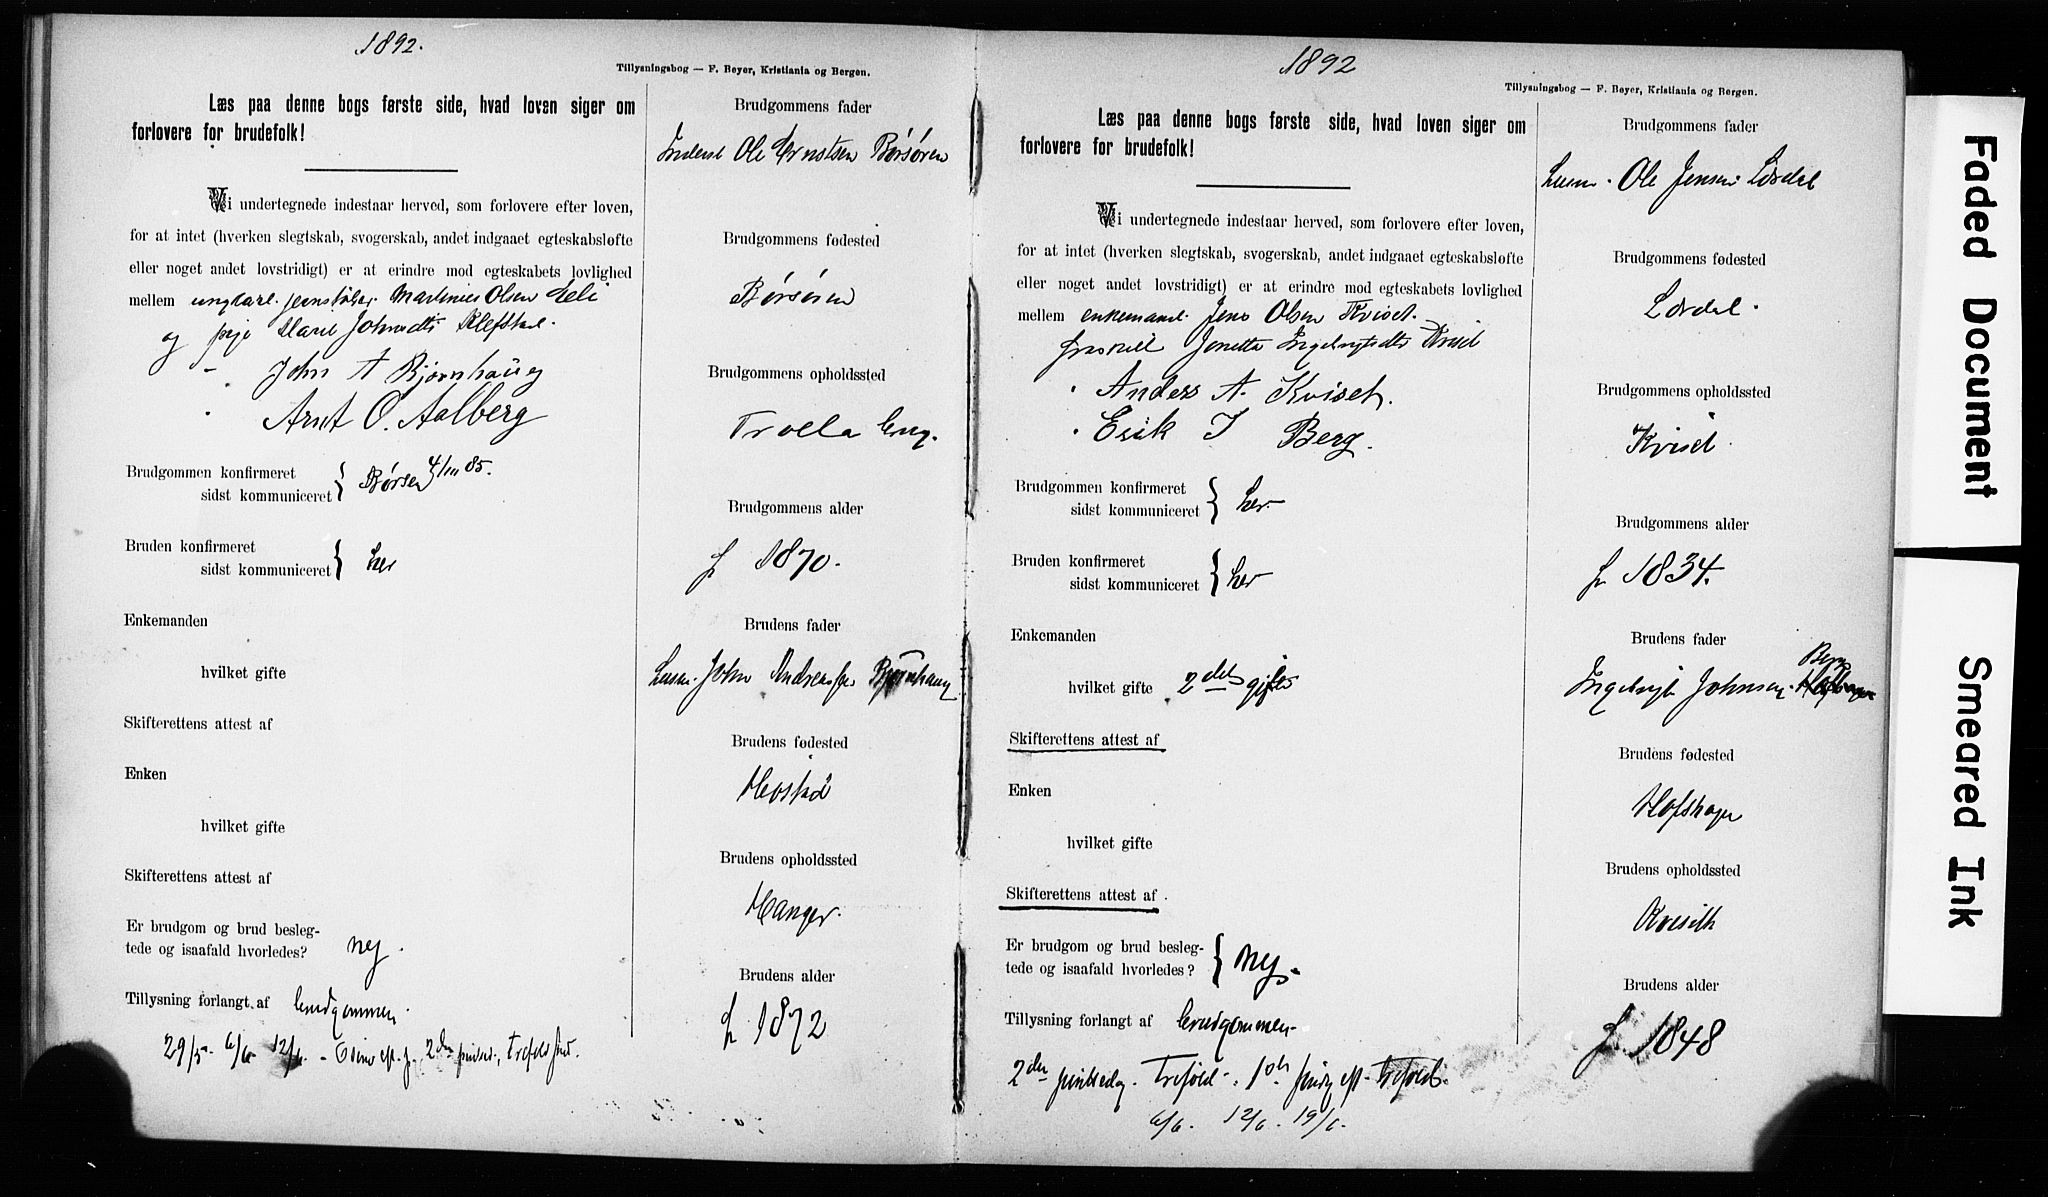 1892.
Tillysningsbog — F. Beyer, Kristiania og Bergen.
Læs paa denne bogs første side, hvad loven siger om
forlovere for brudefolk!
Vi undertegnede indestaar herved, som forlovere efter loven,
for at intet (hverken slegtskab, svogerskab, andet indgaaet egteskabsløfte
eller noget andet lovstridigt) er at erindre mod egteskabets lovlighed
mellem ungkarl Martinus Olsen
og pige Marie
John A Bjørnhaug
Arnt O. Aalberg
Brudgommen konfirmeret
sidst kommuniceret } Børsen 4/10 85.
Bruden konfirmeret
sidst kommuniceret } her
Enkemanden
hvilket gifte
Skifterettens attest af
Enken
hvilket gifte
Skifterettens attest af
Er brudgom og brud besleg-
tede og isaafald hvorledes? nej.
Tillysning forlangt af brudgommen.
29/5 6/6 12/6
Brudgommens fader
Ole Ernstsen Børsøren
Brudgommens fødested
Børsøren
Brudgommens opholdssted
Troela brug.
Brudgommens alder
f 1870.
Brudens fader
John Bjørnhaug
Brudens fødested
Brudens opholdssted
Hanger.
Brudens alder
f. 1872
1892
Tillysningsbog — F. Beyer, Kristiania og Bergen.
Læs paa denne bogs første side, hvad loven siger om
forlovere for brudefolk!
Vi undertegnede indestaar herved, som forlovere efter loven,
for at intet (hverken slegtskab, svogerskab, andet indgaaet egteskabsløfte
eller noget andet lovstridigt) er at erindre mod egteskabets lovlighed
mellem enkemand Jens Olsen Kviset.
fraskilt Jonetta Kvisel
Anders A. Kviset.
Erik I Berg.
Brudgommen konfirmeret
sidst kommuniceret } her
Bruden konfirmeret
sidst kommuniceret } her
Enkemanden
hvilket gifte 2det gifte
Skifterettens attest af
Enken
hvilket gifte
Skifterettens attest af.
Er brudgom og brud besleg-
tede og isaafald hvorledes? } nej.
Tillysning forlangt af brudgommen
2den pintsedag. 1ste
6/6. 12/6. 19/6.
Brudgommens fader
Ole Jensen Lørdal
Brudgommens fødested
Lørdal.
Brudgommens opholdssted
Kvisel.
Brudgommens alder
f. 1834.
Brudens fader
Berg
Johnsen
Brudens fødested
Hofshagen
Brudens opholdssted
Brudens alder
f. 1848
Faded Document
Smeared Ink